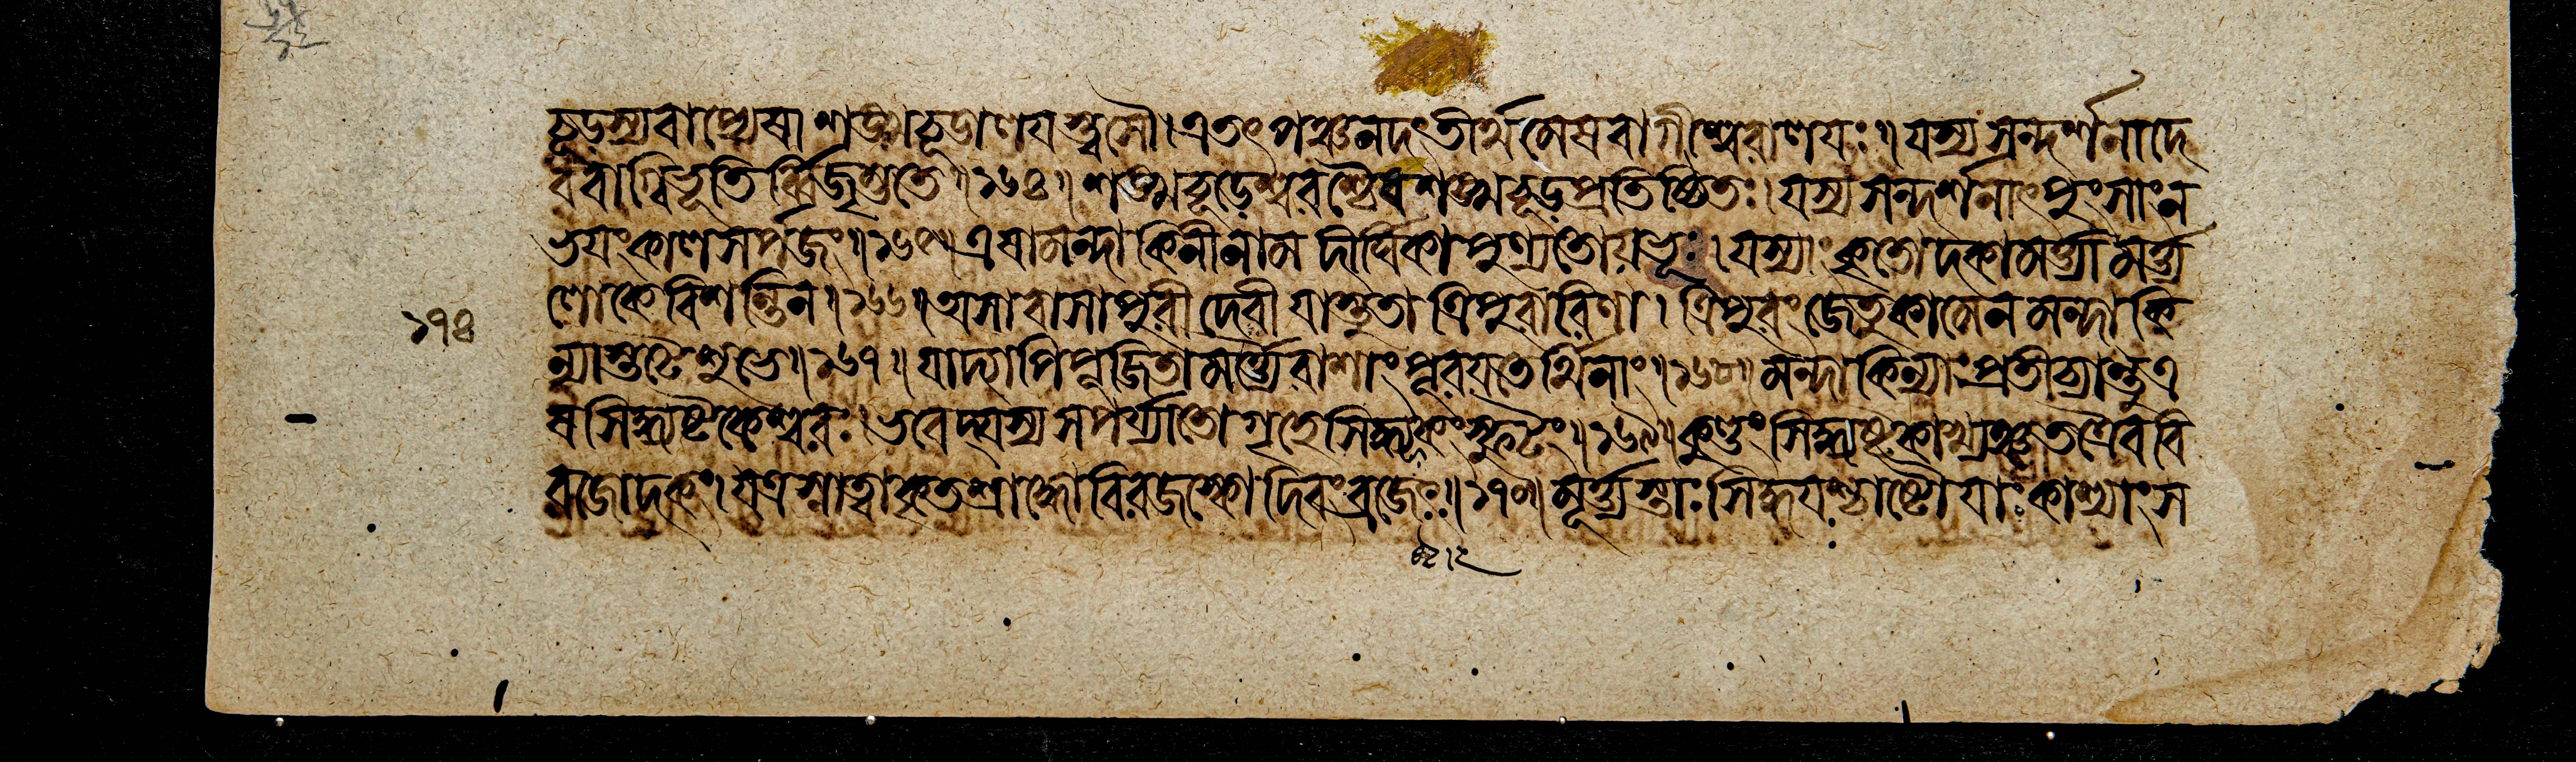 চূড়স্যবাপ্যেষাশঙ্খচূড়ালয়স্ত্বসৌ।এতৎপঞ্চনদংতীর্থমেষবাগীশ্বরালয়ঃ॥যস্যসন্দর্শনাদে
ববাগ্বিভূতির্ব্বিজৃম্ভতে॥১৬৪॥শঙ্খচূড়েশ্বরশ্চৈবশঙ্খচূড়প্রতিষ্ঠিতঃ।যস্যসন্দর্শনাৎপুংসাংন
ভয়ংকালসর্পজং॥১৬৫॥এষামন্দাকিনীনামদীর্ঘিকাপুণ্যতোয়ভূঃ।যস্যাংকৃতোদকামর্ত্ত্যামর্ত্ত্য
লোকেবিশন্তিন॥১৬৬॥অসাবাসাপুরীদেবীযাস্তুতাত্রিপুরারিণা।ত্রিপুরংজেতুকামেনমন্দাকি
১৭৪
ন্যাস্তটেশুভে॥১৬৭॥যাদ্যাপিপূজিতামর্ত্ত্যৈরাশাংপূরয়তের্থিনাং॥১৬৮॥মন্দাকিন্যাঃপ্রতীচ্যান্তুএ
ষসিদ্ধ্যষ্টকেশ্বরঃ।ভবেদ্যস্যসপর্য্যাতোগৃহেসিদ্ধ্যকংস্ফুটং॥১৬৯॥কুণ্ডংসিদ্ধ্যষ্টকাখ্যঞ্চতত্রৈববি
রজোদকং।যত্রস্নাত্বাকৃতশ্রাদ্ধোবিরজস্কোদিবংব্রজেৎ॥১৭০॥মূর্ত্ত্যস্তাঃসিদ্ধয়শ্চাষ্টৌযাঃকাশ্যাংস